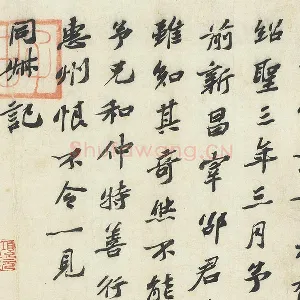 紹聖三年三月予
新昌宰邵君
雖知其奇然不能
予兄和仲特善行
惠州恨不令一見
同叔記
ShufaWang.CN